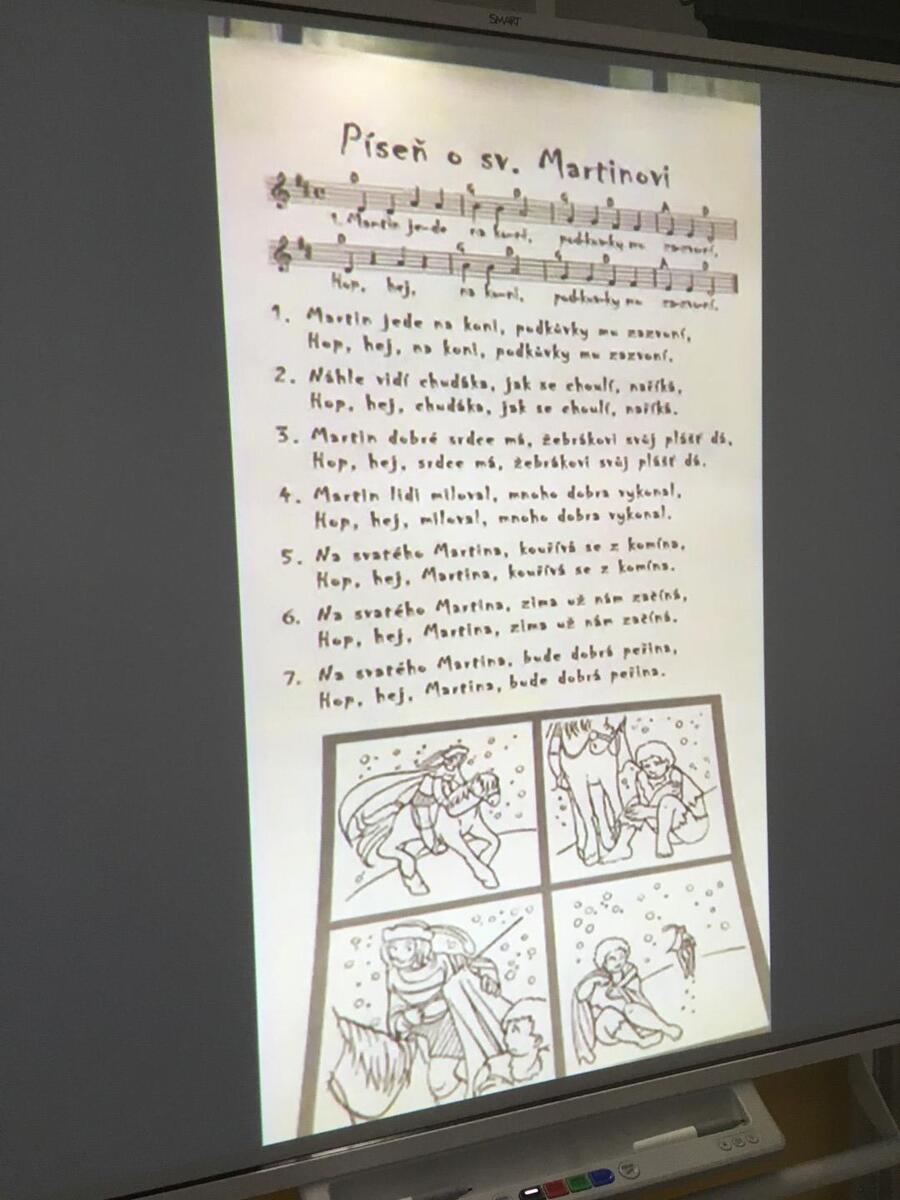 SMART
Píseň o sv. Martinovi
D G D G D A D
1. Martin je-de na ko-ni, pod-ků-vky mu za-zvo-ní,
D G D G D A D
Hop, hej, na ko-ni, pod-ků-vky mu za-zvo-ní.
1. Martin jede na koni, podkůvky mu zazvoní,
Hop, hej, na koni, podkůvky mu zazvoní.
2. Náhle vidí chudáka, jak se choulí, naříká,
Hop, hej, chudáka, jak se choulí, naříká.
3. Martin dobré srdce má, žebrákovi svůj plášť dá,
Hop, hej, srdce má, žebrákovi svůj plášť dá.
4. Martin lidi miloval, mnoho dobra vykonal,
Hop, hej, miloval, mnoho dobra vykonal.
5. Na svatého Martina, kouřívá se z komína,
Hop, hej, Martina, kouřívá se z komína.
6. Na svatého Martina, zima už nám začíná,
Hop, hej, Martina, zima už nám začíná.
7. Na svatého Martina, bude dobrá peřina,
Hop, hej, Martina, bude dobrá peřina.